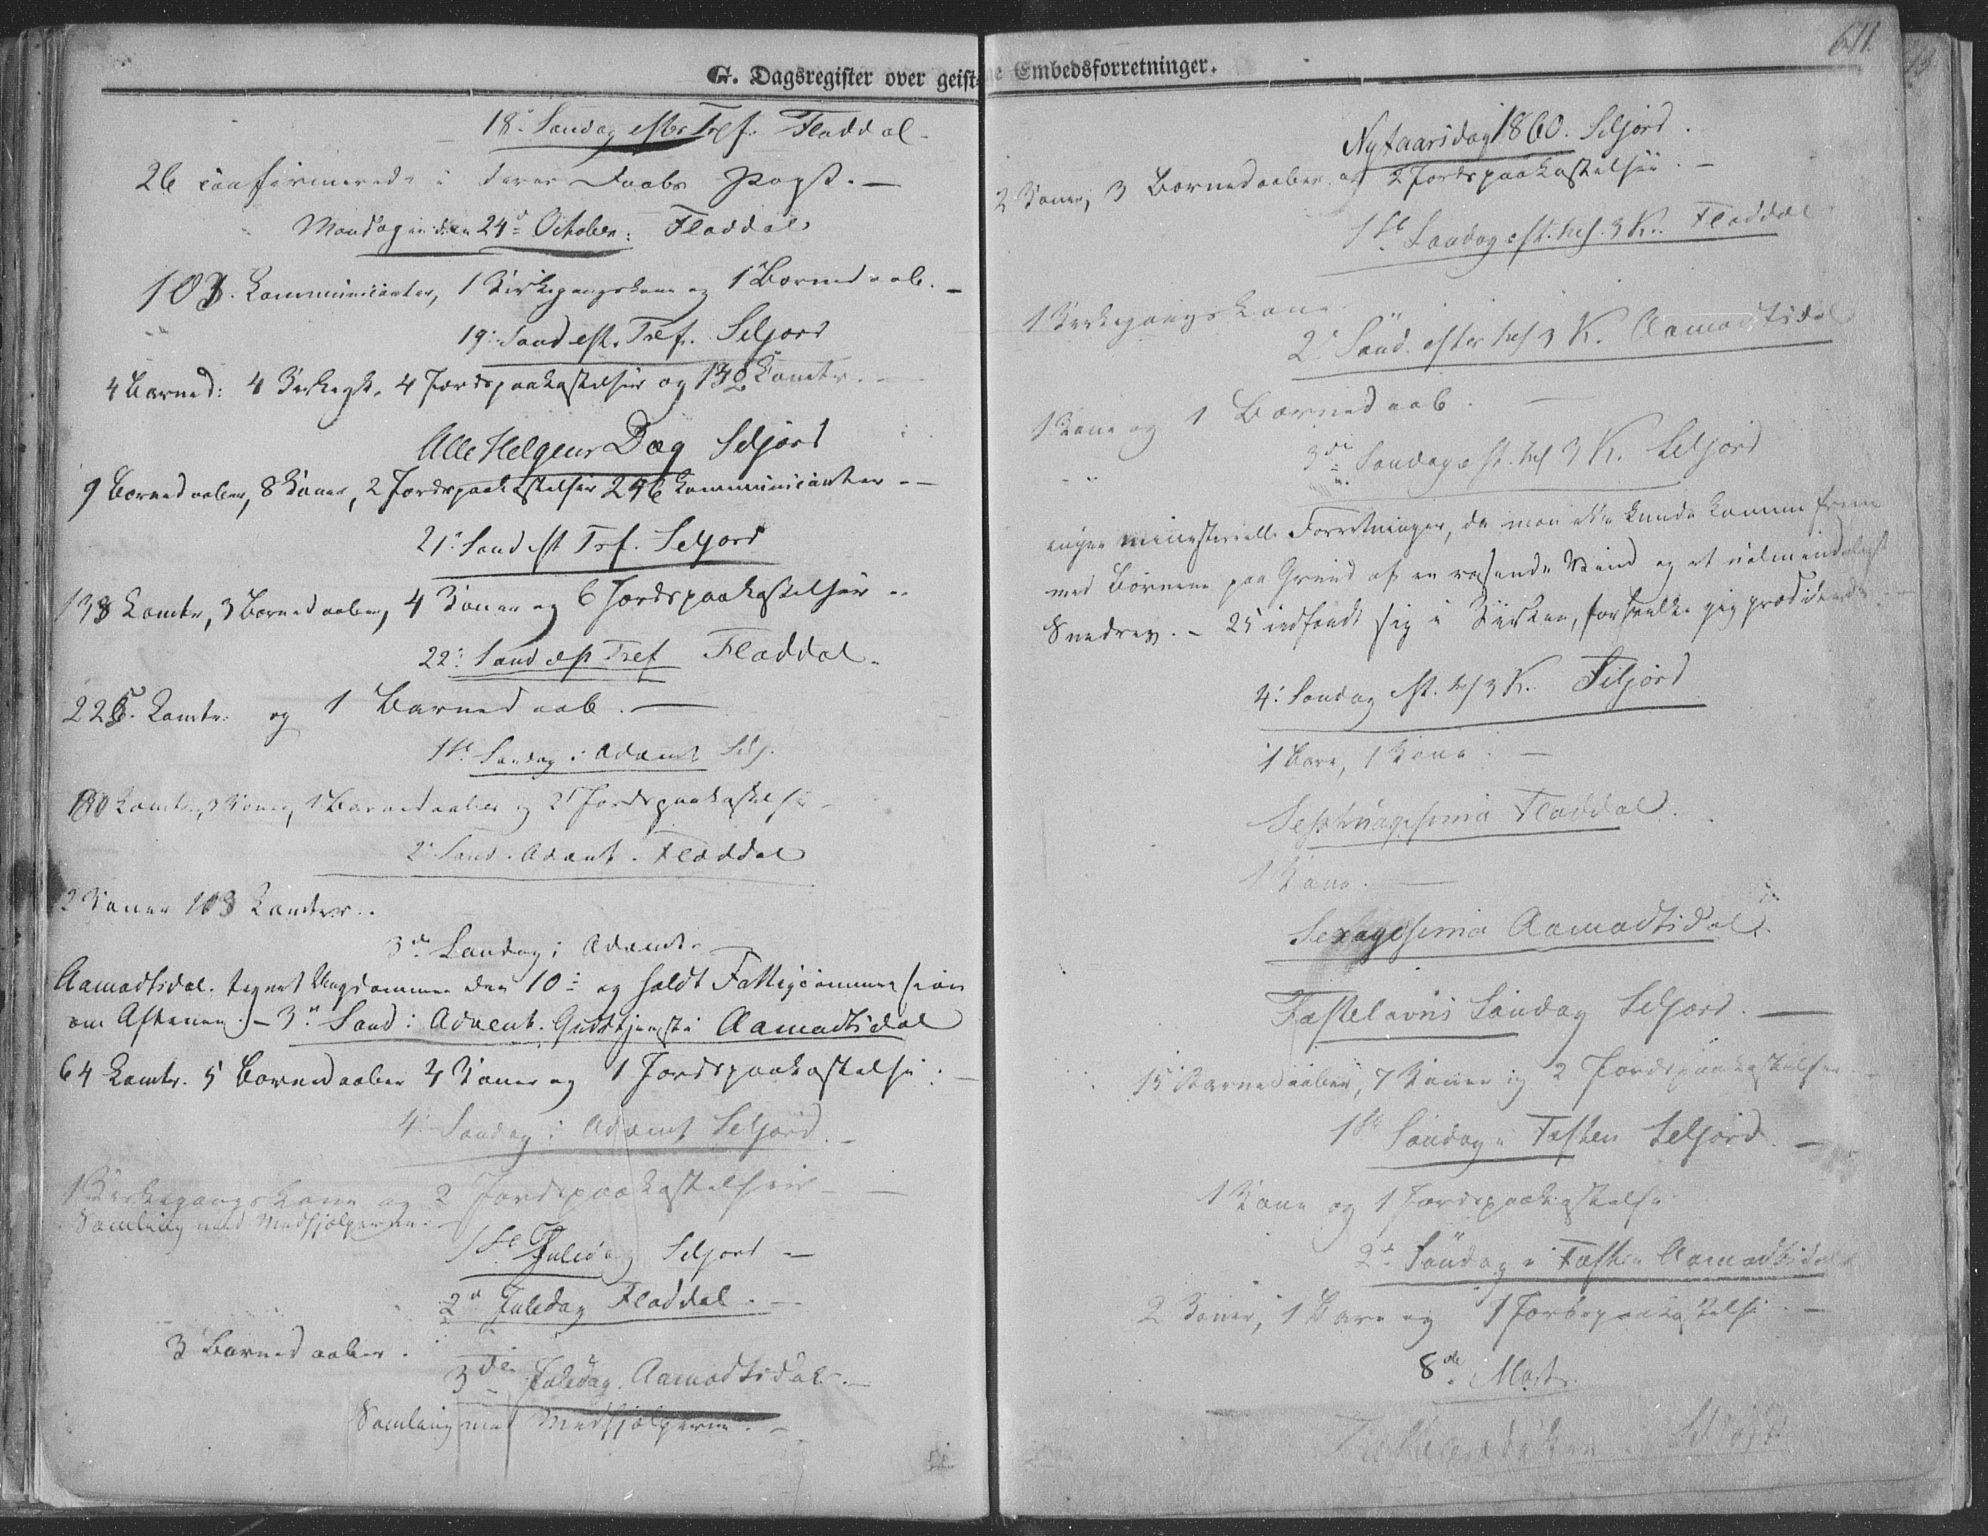 G. Dagsregister over geist
18. Søndag efter Tref. Fladdal
26 confirmerede i deres Daabs Pagt. —
Mandagen den 24d October. Fladdal
103. Kommunicanter, 1 Kirkegangskone og 1 Barnedaab. —
19. Sønd. eft. Tref. Seljord
4 Barned: 4 Kirkegk. 4 Jordspaakastelser og 138 Komtr. —
Alle Helgens Dag Seljord
9 Barnedaaber, 8 Koner, 2 Jordspaakastelser 246 Kommunicanter —
21. Sønd eft Tref. Seljord
138 Komtr, 3 Barnedaaber, 4 Koner og 6 Jordspaakastelser
22. Sønd eft Tref Fladdal
225. Komtr. og 1 Barnedaab. —
1ste Søndag i Advent Selj.
Komtr., 3 Koner, 1 Barnedaaber og 2 Jordspaakastelse
2. Sønd. Advent. Fladdal
2 Koner 103 Komter..
3die Søndag i Advent
Aamodtsdal. tegnet Ungdommen den 10de og holdt Fattigcommission
om Aftenen. — 3die Sønd i Advent. Gudstjeneste i Aamodtsdal
64 Komtr. 5 Barnedaaber 4 Koner og 1 Jordspaakastelse. —
4. Søndag i Advent Seljord. —
1 Kirkegangskone og 2 Jordspaakastelser —
Samling med Medhjælperne. —
1ste Juledag Seljord —
2d Juledag Fladdal. —
3 Barnedaaber.
3die Juledag. Aamodtsdal. —
Samling med Medhjælperne. —
Embedsforretninger.
611
Nytaarsdag 1860. Seljord.
2 Koner, 3 Barnedaaber og 2 Jordspaakastelser. —
1ste Søndag eft. hel. 3 K. Fladdal
1 Kirkegangskone
2. Sønd. efter hel 3 K. Aamodtsdal
1 Kone og 1 Barnedaab. —
3die Søndag eft. hel 3 K. Seljord
ingen ministerielle Forretninger, da man ikke kunde komme frem
med Børnene paa Grund af en rasende Vind og et ualmindeligt
Snedrev. — 25 indfandt sig i Kirken, for hvilke jeg prædikede. —
4. Søndag eft. h 3 K. Seljord
1 Barn, 1 Kone. —
Septuagesima Fladdal.
1 Kone. —
Sexagesima Aamodtsdal.
Fastelavns Søndag Seljord. —
15 Barnedaaber, 7 Koner og 2 Jordspaakastelser. —
1ste Søndag i Fasten Seljord. —
1 Kone og 1 Jordspaakastelse
2d Søndag i Fasten Aamodtsdal
2 Koner, 1 Barn og 1 Jordspaakastelse. —
8de Marts.
Seljord